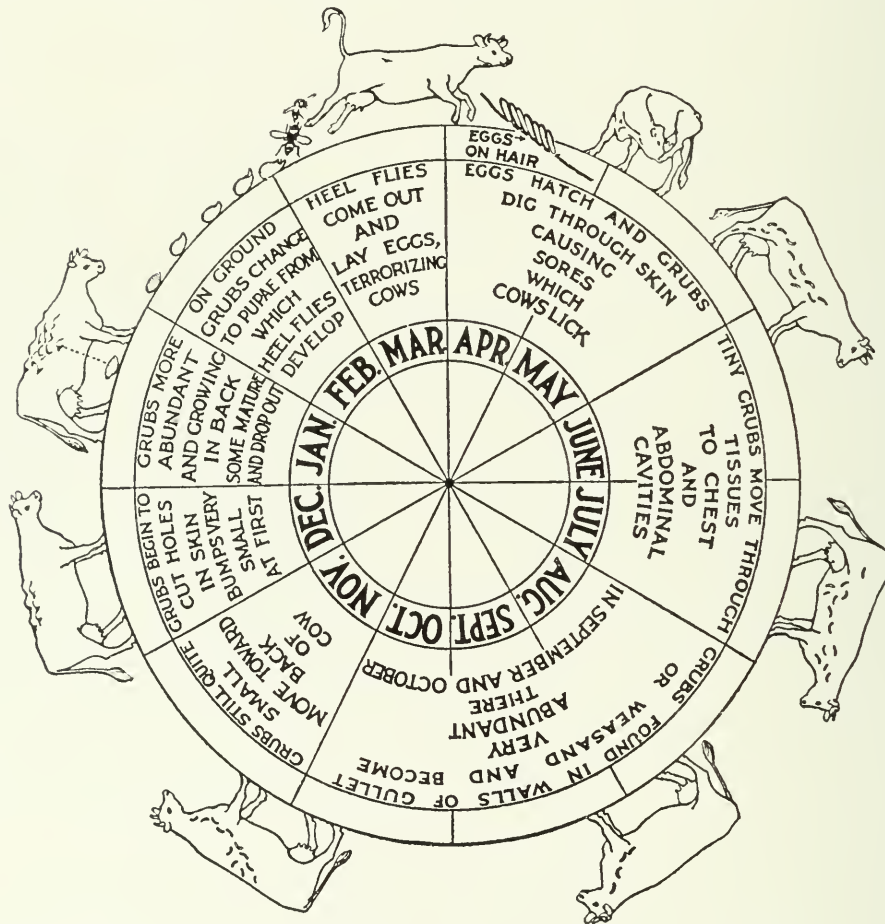 EGGS→
ON HAIR
EGGS HATCH AND GRUBS
DIG THROUGH SKIN
CAUSING
SORES
WHICH
COWS LICK
TINY GRUBS MOVE THROUGH
TISSUES
TO CHEST
AND
ABDOMINAL
CAVITIES
GRUBS FOUND IN WALLS OF GULLET
OR WEASAND AND BECOME
VERY
ABUNDANT
THERE
IN SEPTEMBER AND OCTOBER
GRUBS STILL QUITE
SMALL
MOVE TOWARD
BACK
OF
COW
GRUBS BEGIN TO
CUT HOLES
IN SKIN
BUMPS VERY
SMALL
AT FIRST
GRUBS MORE
ABUNDANT
AND GROWING
IN BACK
SOME MATURE
AND DROP OUT
ON GROUND
GRUBS CHANGE
TO PUPAE FROM
WHICH
HEEL FLIES
DEVELOP
HEEL FLIES
COME OUT
AND
LAY EGGS,
TERRORIZING
COWS
JAN.
FEB.
MAR.
APR.
MAY
JUNE
JULY
AUG.
SEPT.
OCT.
NOV.
DEC.